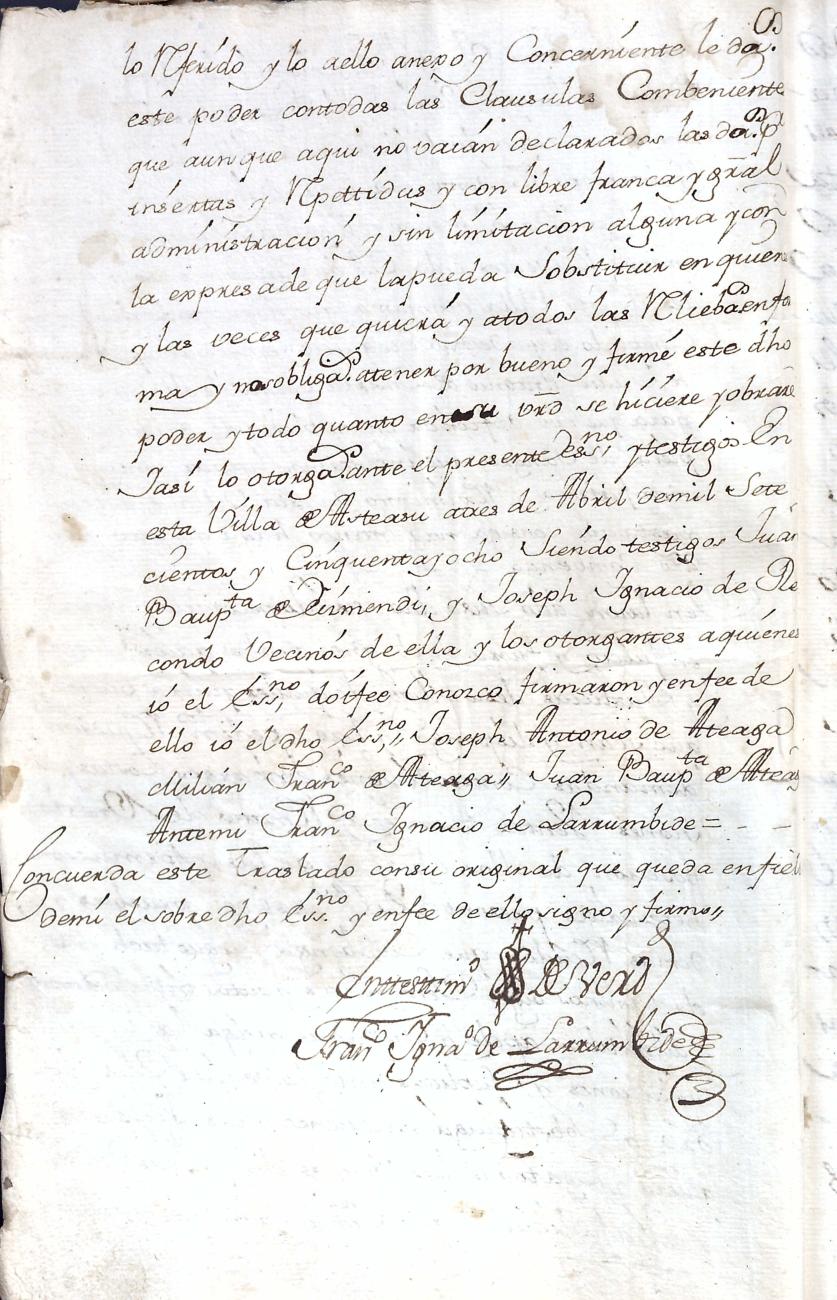 lo Referido y lo aello anexo y Concerniente le dan
este poder contodas las Clausulas Combeniente
que aunque aqui no vaián declaradas las dan pr
insertas y Repettidas y con libre franca y gral
administracion y sin limitacion alguna y con
la expresa de que lapueda Sobstituir en quien
y las veces que quiera y atodos las Relieban enfo
ma y se obligan atener por bueno y firme este dho
poder y todo quanto en su vrd se hiciere y obrare
Iasi lo otorgan ante el presente essno, y testigos En
esta Villa de Asteasu atres de Abril demil Sete
cientos y Cinquenta y ocho Siendo testigos Juan
Baupta de y Joseph Ignacio de Re
condo Vecinos de ella y los otorgantes aquienes
ió el Essno, doifee Conozco firmaron y enfee de
ello ió el dho Essno,, Joseph Antonio de Ateaga
Milián Franco de Ateaga,, Juan Baupta de Atea
Antemi Franco Ignacio de Larrumbide = - -
Concuerda este Traslado consu original que queda enfiel
demi el sobre dho Essno y enfee de ello signo y firmo,,
Enttesttimo de Verd
Franco Ignao de Larrumbide